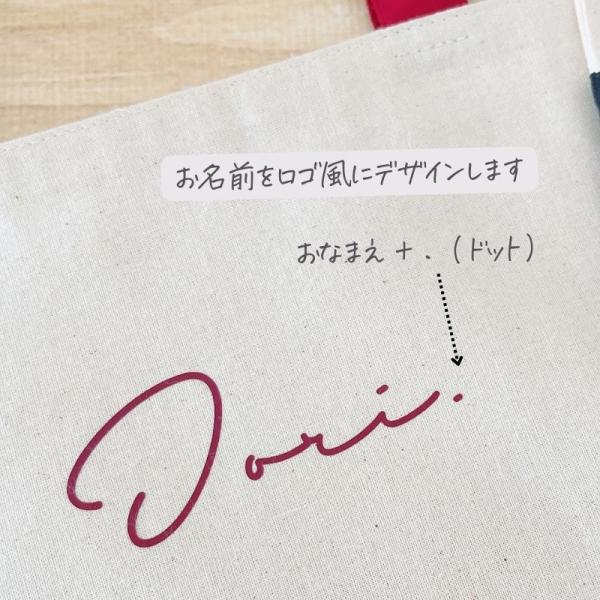 お名前をロゴ風にデザインします
おなまえ + . (ドット)
Jori.